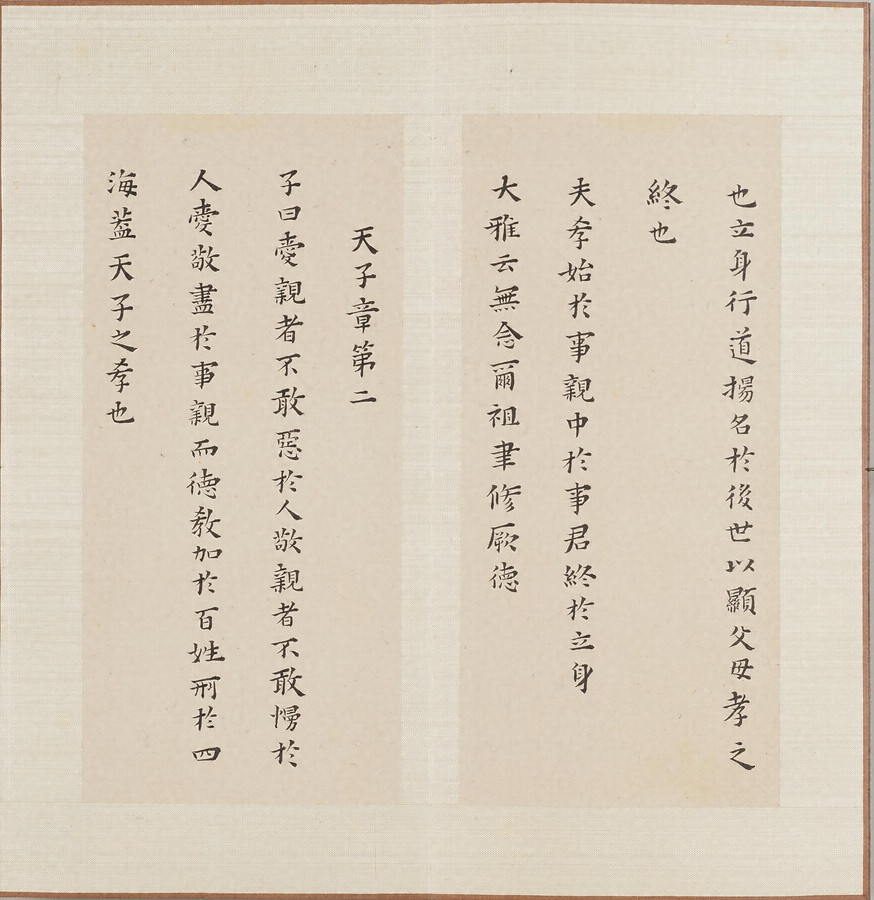 也立身行道揚名於後世以顯父母孝之
終也
夫孝始於事親中於事君終於立身
大雅云無念爾祖聿修厥德
天子章第二
子曰愛親者不敢惡於人敬親者不敢慢於
人愛敬盡於事親而德教加於百姓刑於四
海蓋天子之孝也